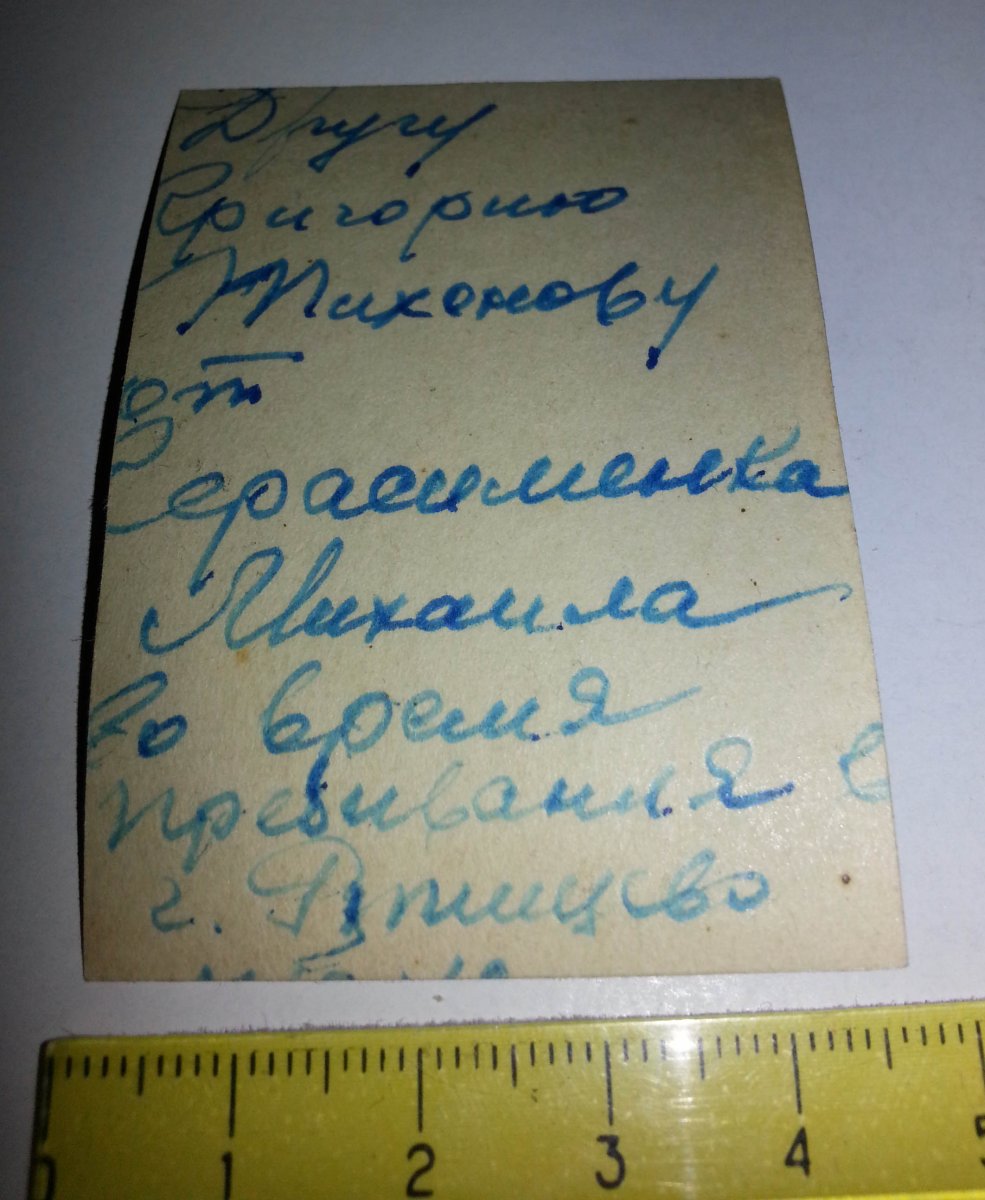 Другу
Григорию
Тихонову
от
Герасименка
Михаила
во время
пребивания в
г. Ртищево
0 1 2 3 4 5